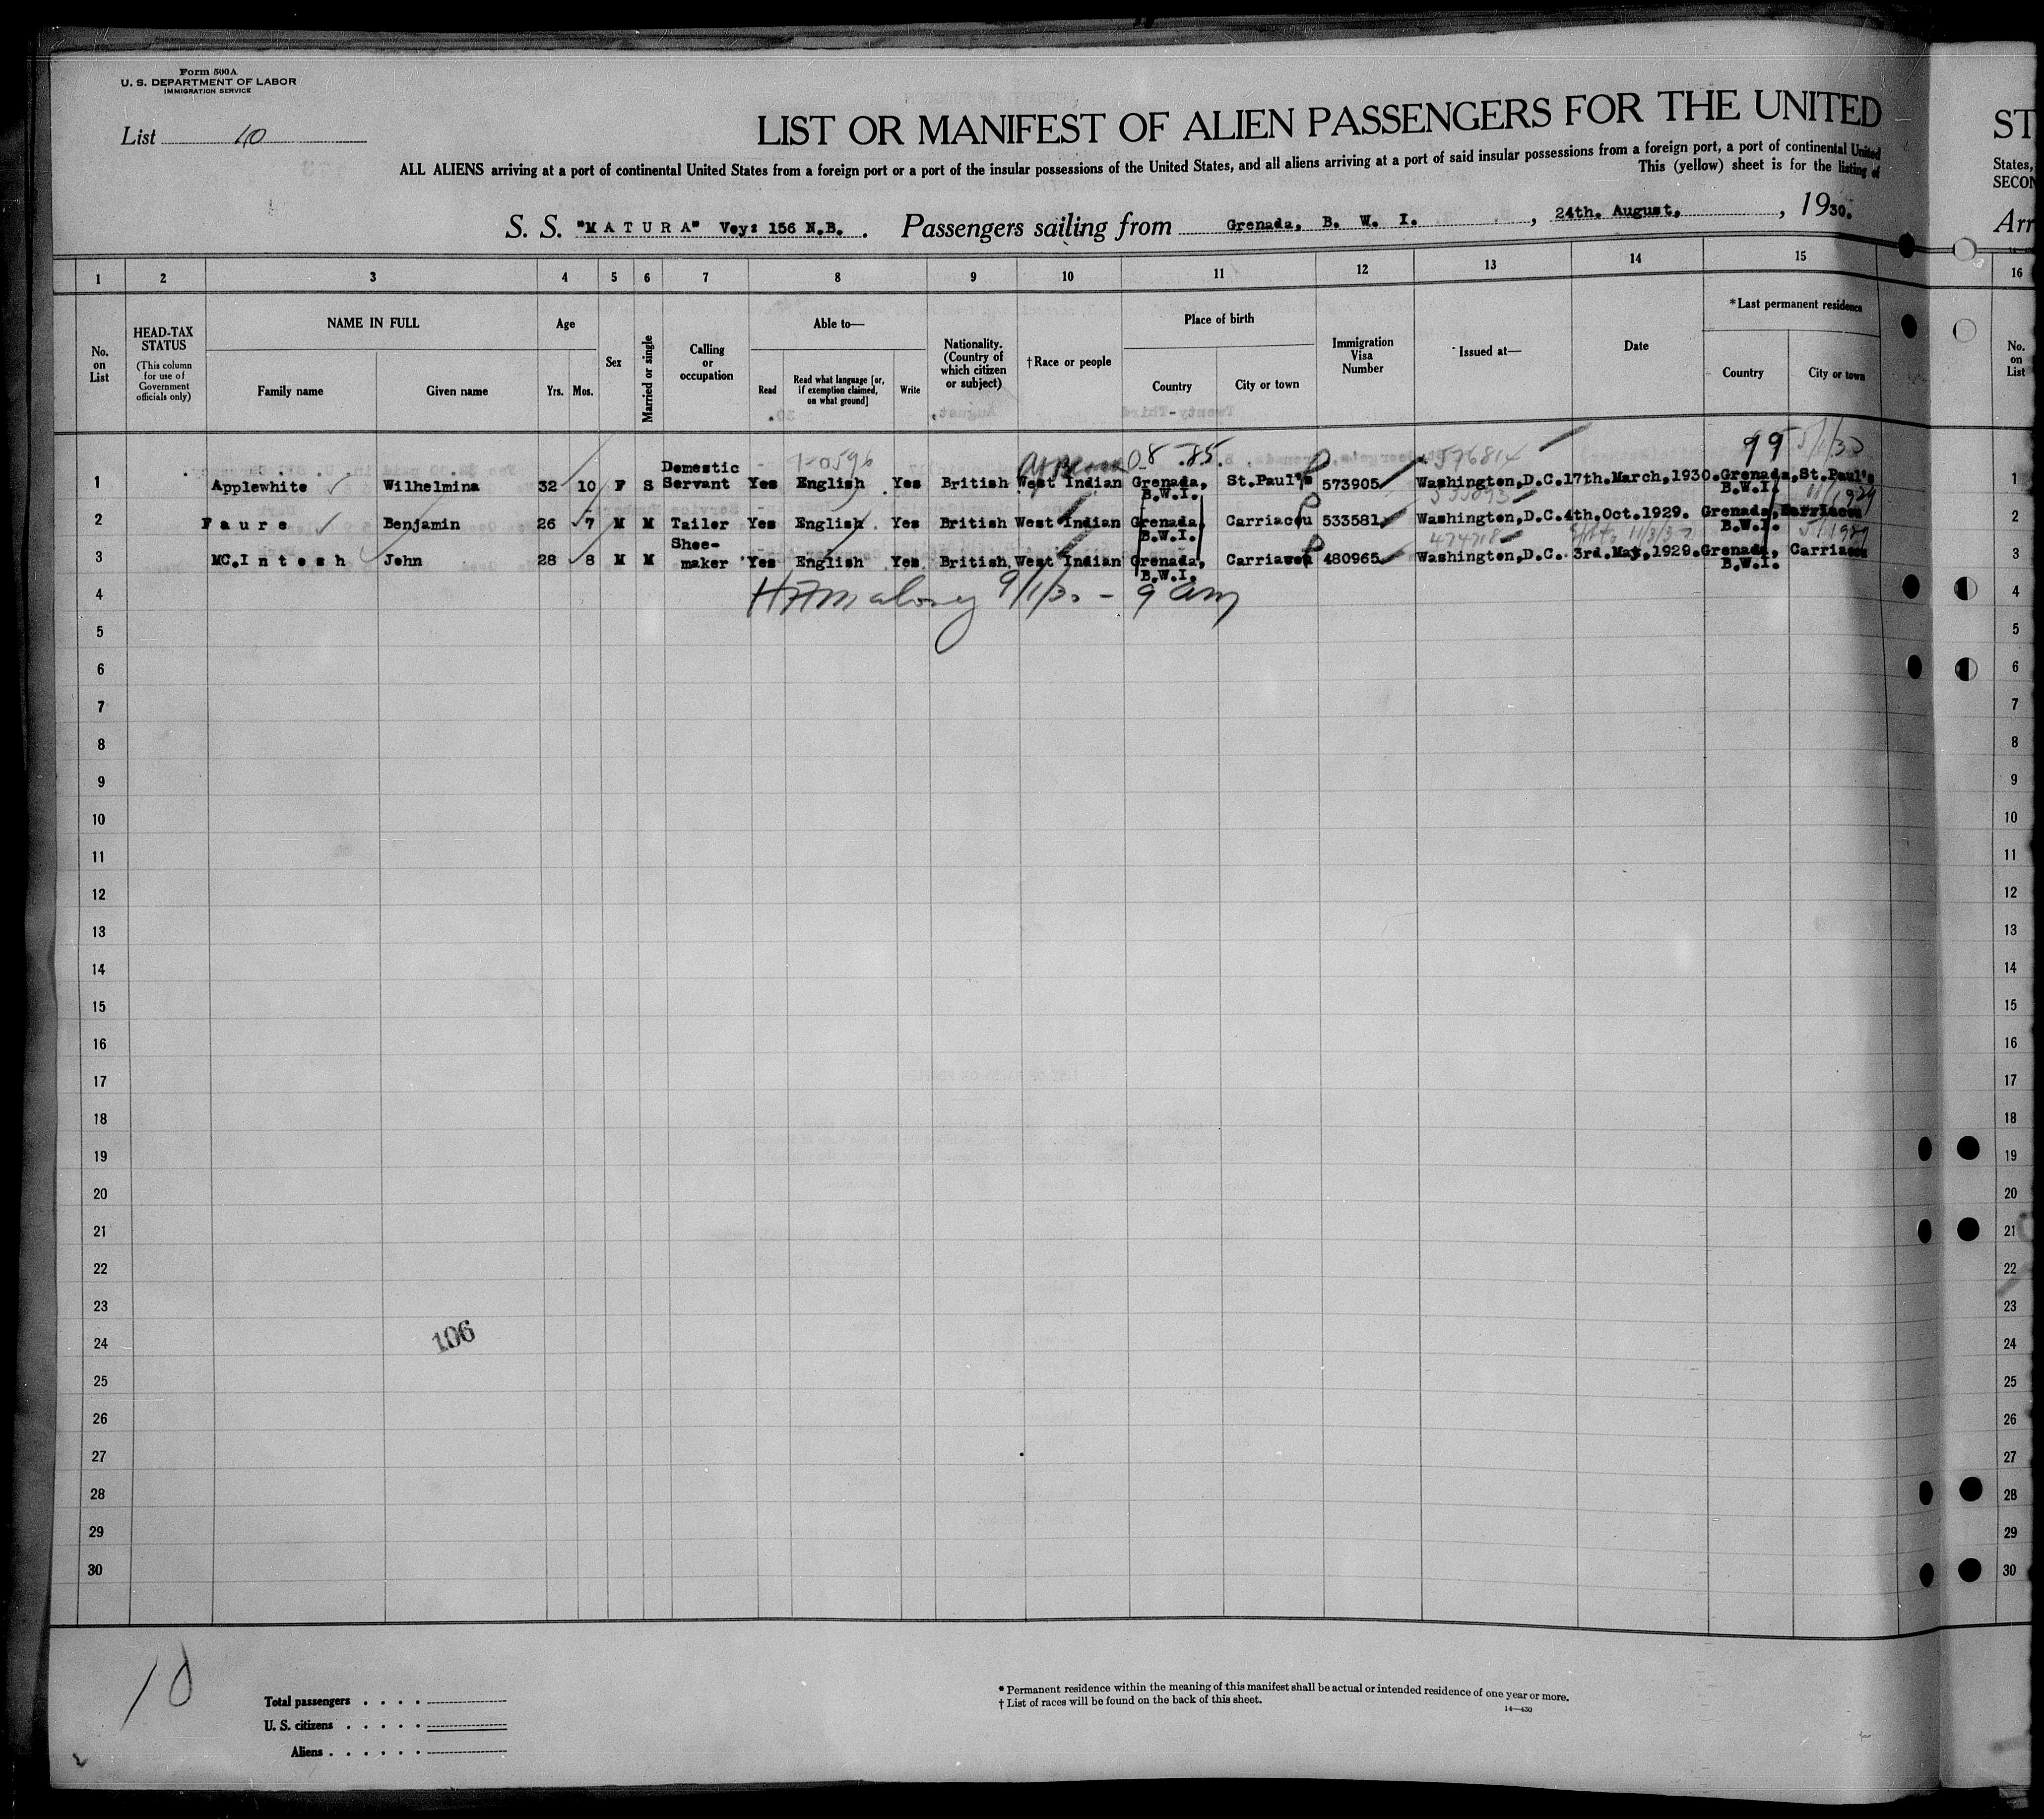 Form 500A
U. S. DEPARTMENT OF LABOR
IMMIGRATION SERVICE
List 10
LIST OR MANIFEST OF ALIEN PASSENGERS FOR THE UNITED
ST
ALL ALIENS arriving at a port of continental United States from a foreign port or a port of the insular possessions of the United States, and all aliens arriving at a port of said insular possessions from a foreign port, a port of continental United
States,
This (yellow) sheet is for the listing of
SECON
S. S. "MATURA" Voy: 156 N.B. . Passengers sailing from Grenada, B. W. I. , 24th. August. , 1930.
Arr
1 2 3 4 5 6 7 8 9 10 11 12 13 14 15 16
No. on List
HEAD-TAX STATUS
(This column for use of Government officials only)
NAME IN FULL
Family name Given name
Age
Yrs. Mos.
Sex
Married or single
Calling or occupation
Able to—
Read
Read what language [or, if exemption claimed, on what ground]
Write
Nationality. (Country of which citizen or subject)
†Race or people
Place of birth
Country City or town
Immigration Visa Number
Issued at—
Date
*Last permanent residence
Country City or town
No. on List
1-0596 08 .85. 576814 99 5/1/30
1 Applewhite Wilhelmina 32 10 F S Domestic Servant Yes English Yes British West Indian Grenada, B.W.I. St.Paul's 573905 Washington,D.C. 17th.March,1930. Grenada, B.W.I. St.Paul's 1
2 Faure Benjamin 26 7 M M Tailor Yes English Yes British West Indian Grenada, B.W.I. Carriacou 533581 Washington,D.C. 4th.Oct.1929. Grenada, B.W.I. Carriacou 2
474718
3 MC.Intosh John 28 8 M M Shoe-maker Yes English Yes British West Indian Grenada, B.W.I. Carriacou 480965 Washington,D.C. 3rd.May,1929. Grenada, B.W.I. Carriacou 3
4 9/1/30 - 9 am 4
5 5
6 6
7 7
8 8
9 9
10 10
11 11
12 12
13 13
14 14
15 15
16 16
17 17
18 18
19 19
20 20
21 21
22 22
23 23
24 106 24
25 25
26 26
27 27
28 28
29 29
30 30
10
Total passengers . . . .
U. S. citizens . . . . .
Aliens . . . . . .
* Permanent residence within the meaning of this manifest shall be actual or intended residence of one year or more.
† List of races will be found on the back of this sheet.
14—430